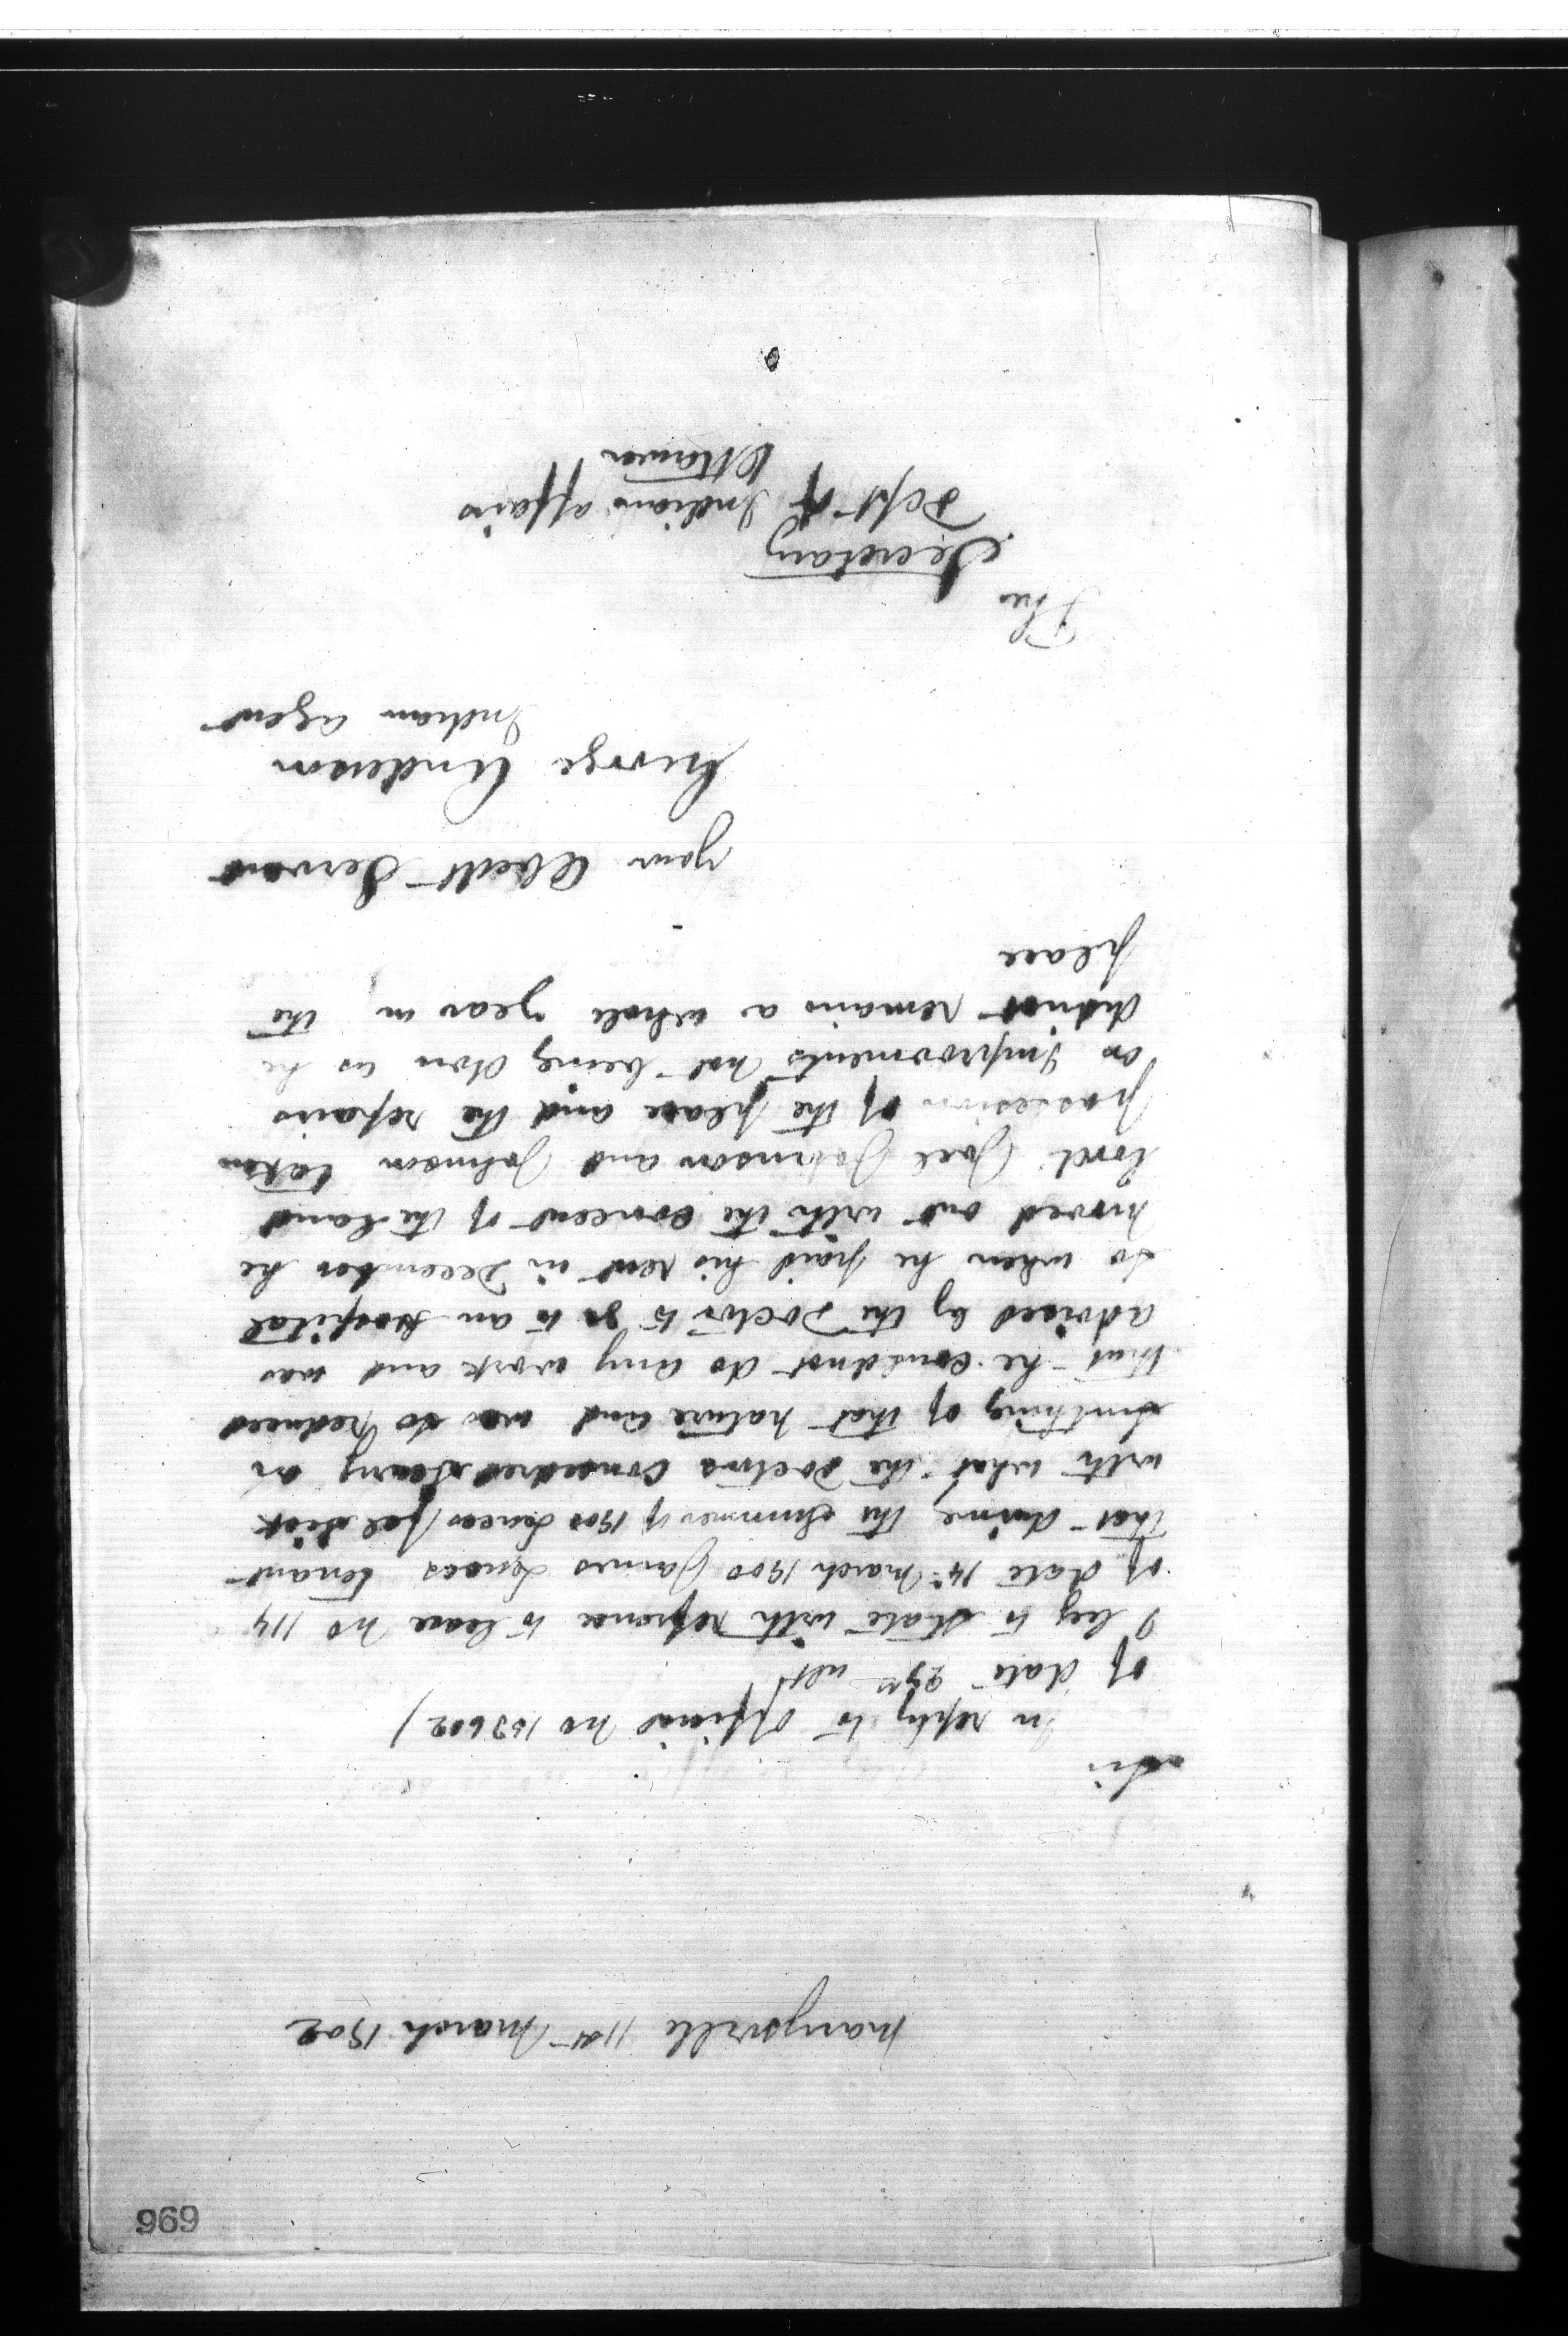 696
Marysville 11st March 1902
Sir
In reply to Official No 153602)
of date 27th ult
I beg to state with refrence to lease No 114
of date 14th March 1900 James tenant
that during the Summer of 1900 fell sick
with what the Doctors Considred or
Sumthing of that nature and was so Reduced
that he couldnot do any work and was
advised by the Doctor to go to an Hospital
so when he paid his rent in December he
moved out with the concent of the land
lord Joel Johnson and Johnson taken
possesion of the place and the repairs
or Improvments not being don as he
didnot remain a whole year in the
place
your Obedt Servant
George Anderson
Indian agent
The
Secretary
Dept of Indian affairs
Ottawa